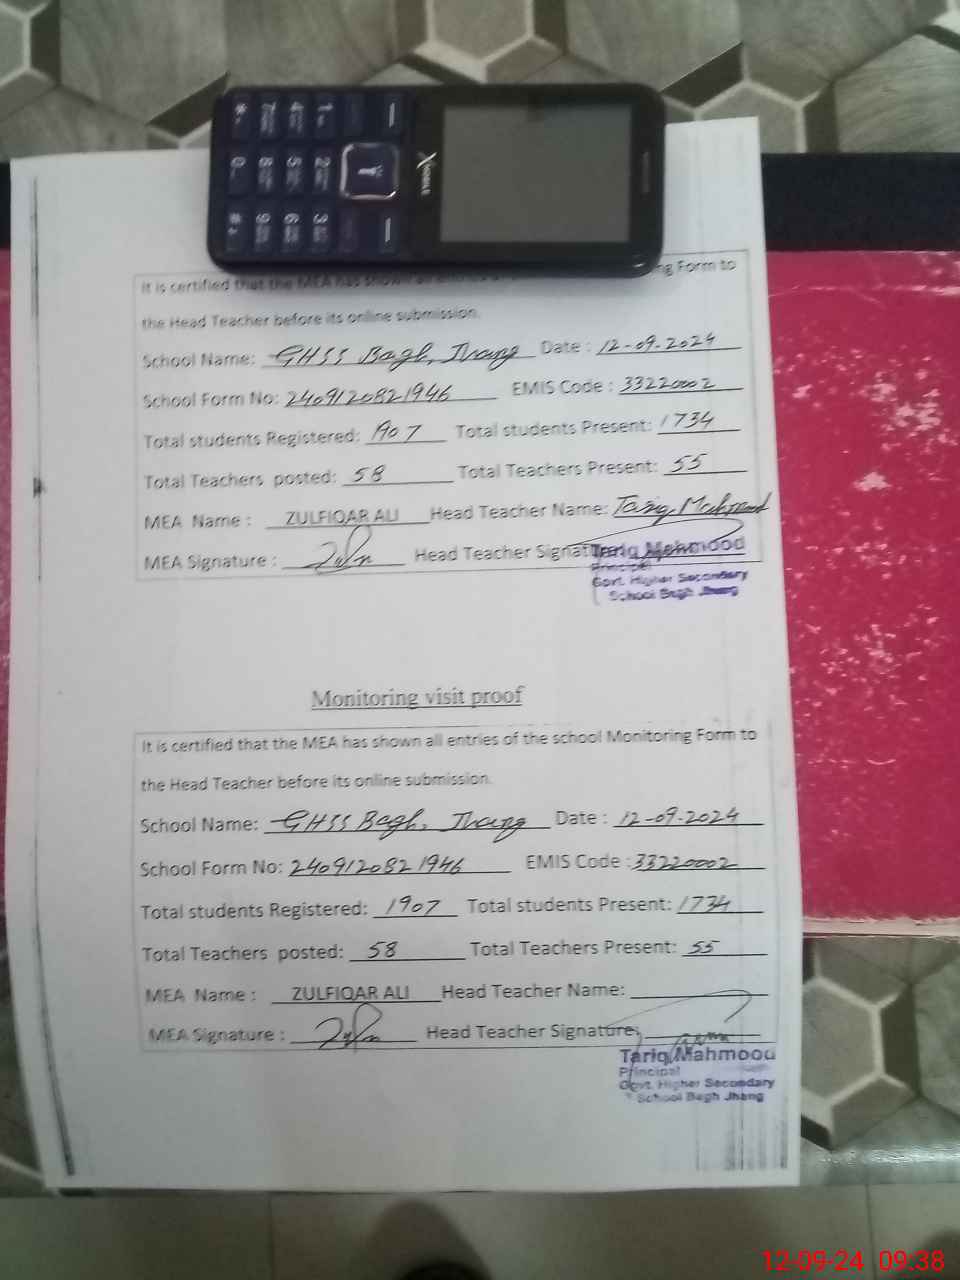 XMOBILE
1
2
3
4
5
6
7
8
9
*
0
#
It is certified that the MEA has shown all entries ng Form to
the Head Teacher before its online submission.
School Name: GHSS Bagh, Jhang Date : 12-09-2024
School Form No: 2409120821946 EMIS Code : 33220002
Total students Registered: 1907 Total students Present: 1734
Total Teachers posted: 58 Total Teachers Present: 55
MEA Name : ZULFIQAR ALI Head Teacher Name: Tariq Mahmood
MEA Signature : Head Teacher Signature
Tariq Mahmood
Principal
Govt. Higher Secondary
School Bagh Jhang
Monitoring visit proof
It is certified that the MEA has shown all entries of the school Monitoring Form to
the Head Teacher before its online submission.
School Name: GHSS Bagh, Jhang Date : 12-09-2024
School Form No: 2409120821946 EMIS Code : 33220002
Total students Registered: 1907 Total students Present: 1734
Total Teachers posted: 58 Total Teachers Present: 55
MEA Name : ZULFIQAR ALI Head Teacher Name:
MEA Signature : Head Teacher Signature:
Tariq Mahmood
Principal
Govt. Higher Secondary
School Bagh Jhang
12-09-24 09:38